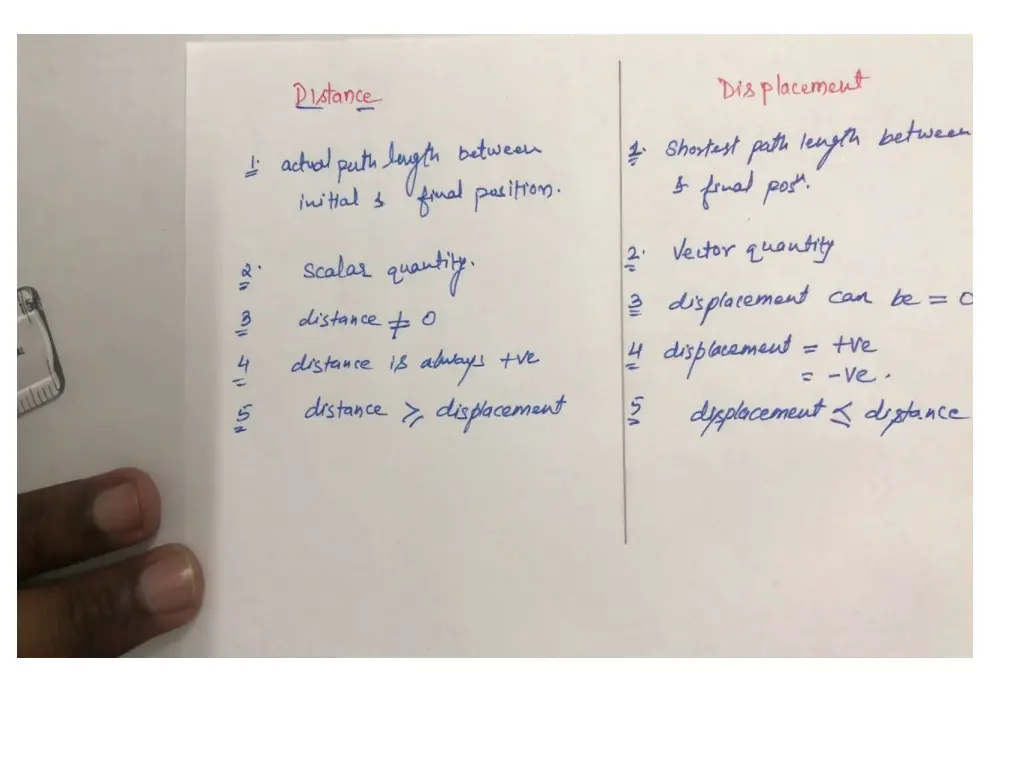 Distance
1. actual path length between
initial & final position.
2. scalar quantity.
3 distance ≠ 0
4 distance is always +ve
5 distance ⩾ displacement
Displacement
1. shortest path length between
& final posn.
2. Vector quantity
3 displacement can be = 0
4 displacement = +ve
= -ve.
5 displacement ⩽ distance